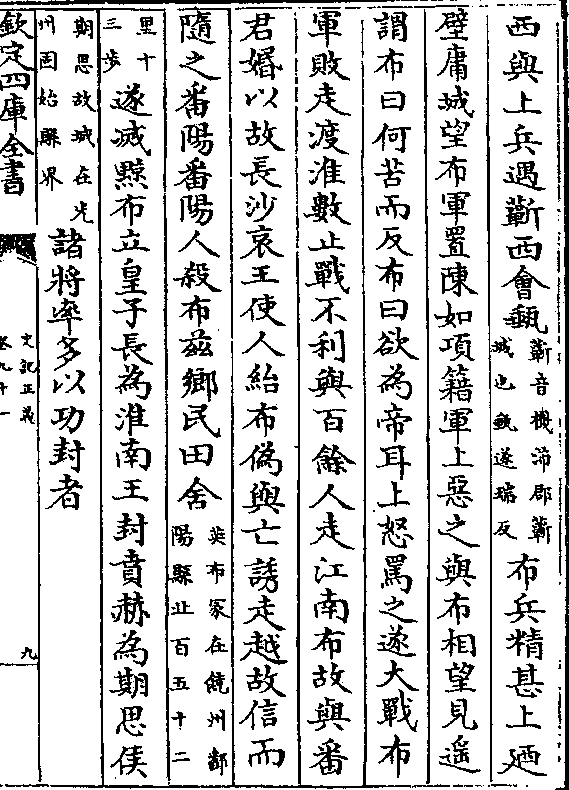 西與上兵遇蘄西會甀蘄音機沛郡蘄城也甀逐瑞反布兵精甚上廼
壁庸城望布軍置陳如項籍軍上惡之與布相望見遥
謂布曰何苦而反布曰欲為帝耳上怒罵之遂大戰布
軍敗走渡淮數止戰不利與百餘人走江南布故與番
君婚以故長沙哀王使人紿布偽與亡誘走越故信而
隨之番陽番陽人殺布兹鄉民田舍英布冢在饒州鄱陽縣北百五十二
里十三步遂滅黥布立皇子長為淮南王封賁赫為期思侯
期思故城在光州固始縣界諸將率多以功封者
欽定四庫全書
史記正義
卷九十一
九